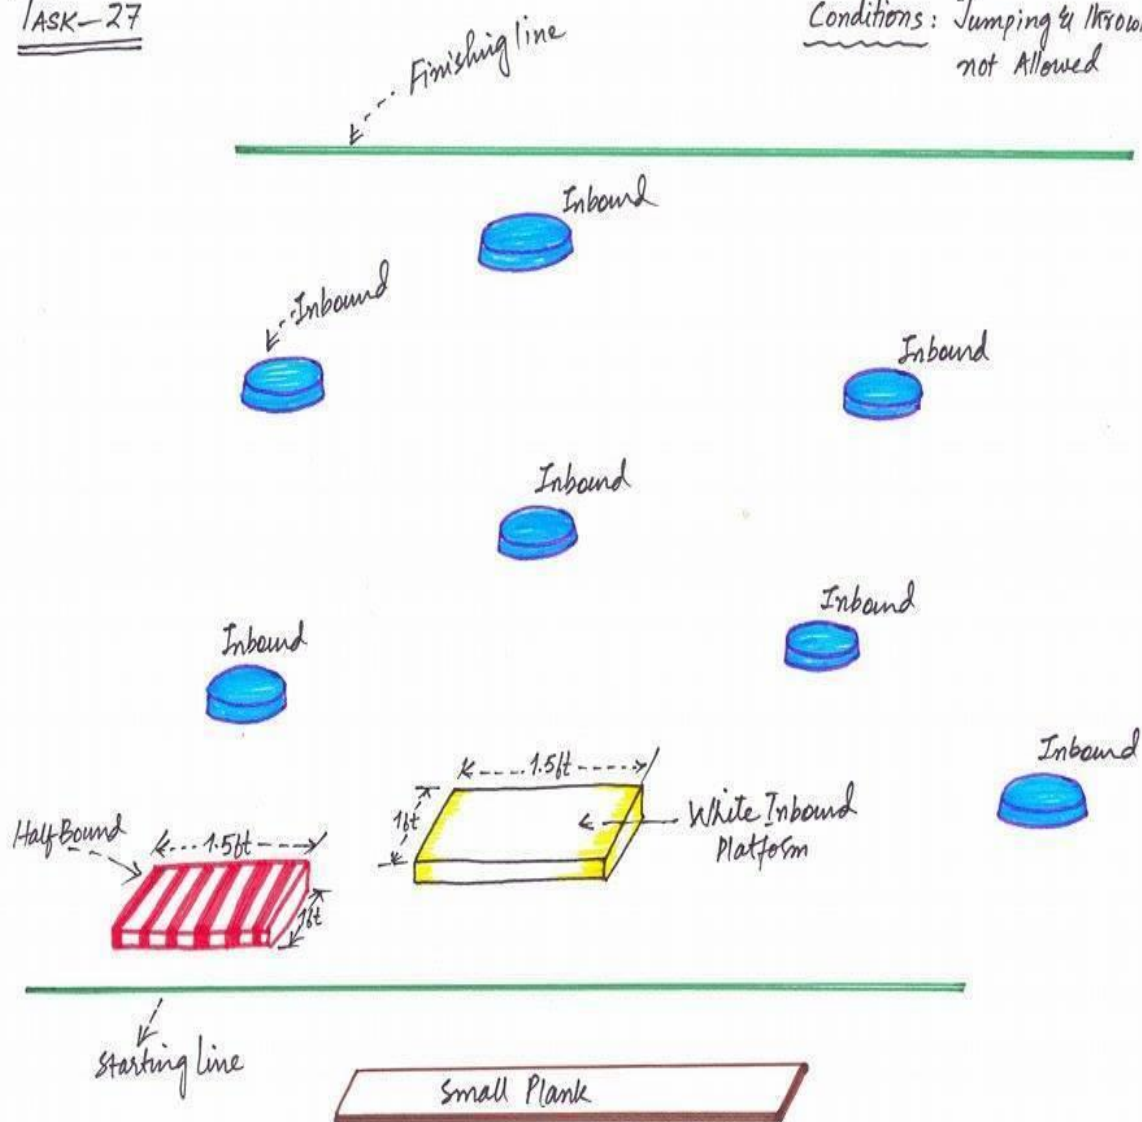 TASK-27
Conditions: Jumping &
not Allowed
Finishing line
Inbound
Inbound
Inbound
Inbound
Inbound
Inbound
Inbound
1.5ft
1ft
White Inbound
Platform
Half Bound
1.5ft
1ft
Starting line
Small Plank